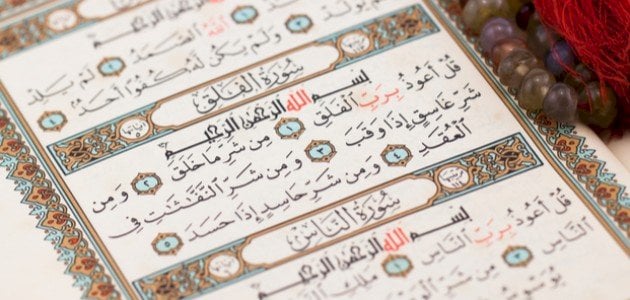 الله الصَّمَدُ ٢ لَمْ يَلِدْ
يُولَدْ ٣ وَلَمْ يَكُن لَّهُ كُفُوًا أَحَدٌ ٤
سُورَةُ الفَلَقِ
بِسْمِ اللهِ الرَّحْمَٰنِ الرَّحِيمِ
قُلْ أَعُوذُ بِرَبِّ الْفَلَقِ ١ مِن شَرِّ مَا خَلَقَ ٢ وَمِن
شَرِّ غَاسِقٍ إِذَا وَقَبَ ٣ وَمِن شَرِّ النَّفَّٰثَٰتِ فِى
الْعُقَدِ ٤ وَمِن شَرِّ حَاسِدٍ إِذَا حَسَدَ ٥
سُورَةُ النَّاسِ
بِسْمِ اللهِ الرَّحْمَٰنِ الرَّحِيمِ
قُلْ أَعُوذُ بِرَبِّ النَّاسِ ١ مَلِكِ
النَّاسِ ٢
مِن شَرِّ